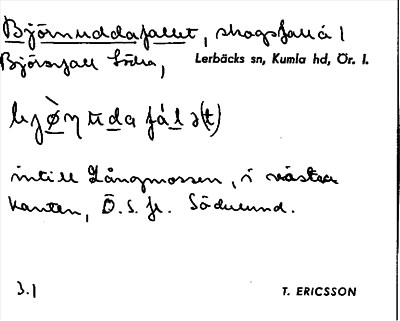 Björnuddafallet, skogsfall å 1
Björsfall Södra, Lerbäcks sn, Kumla hd, Ör. l.
intill Långmossen, i västra
kanten, Ö.S.fr. Södulund.
3.1 T. ERICSSON